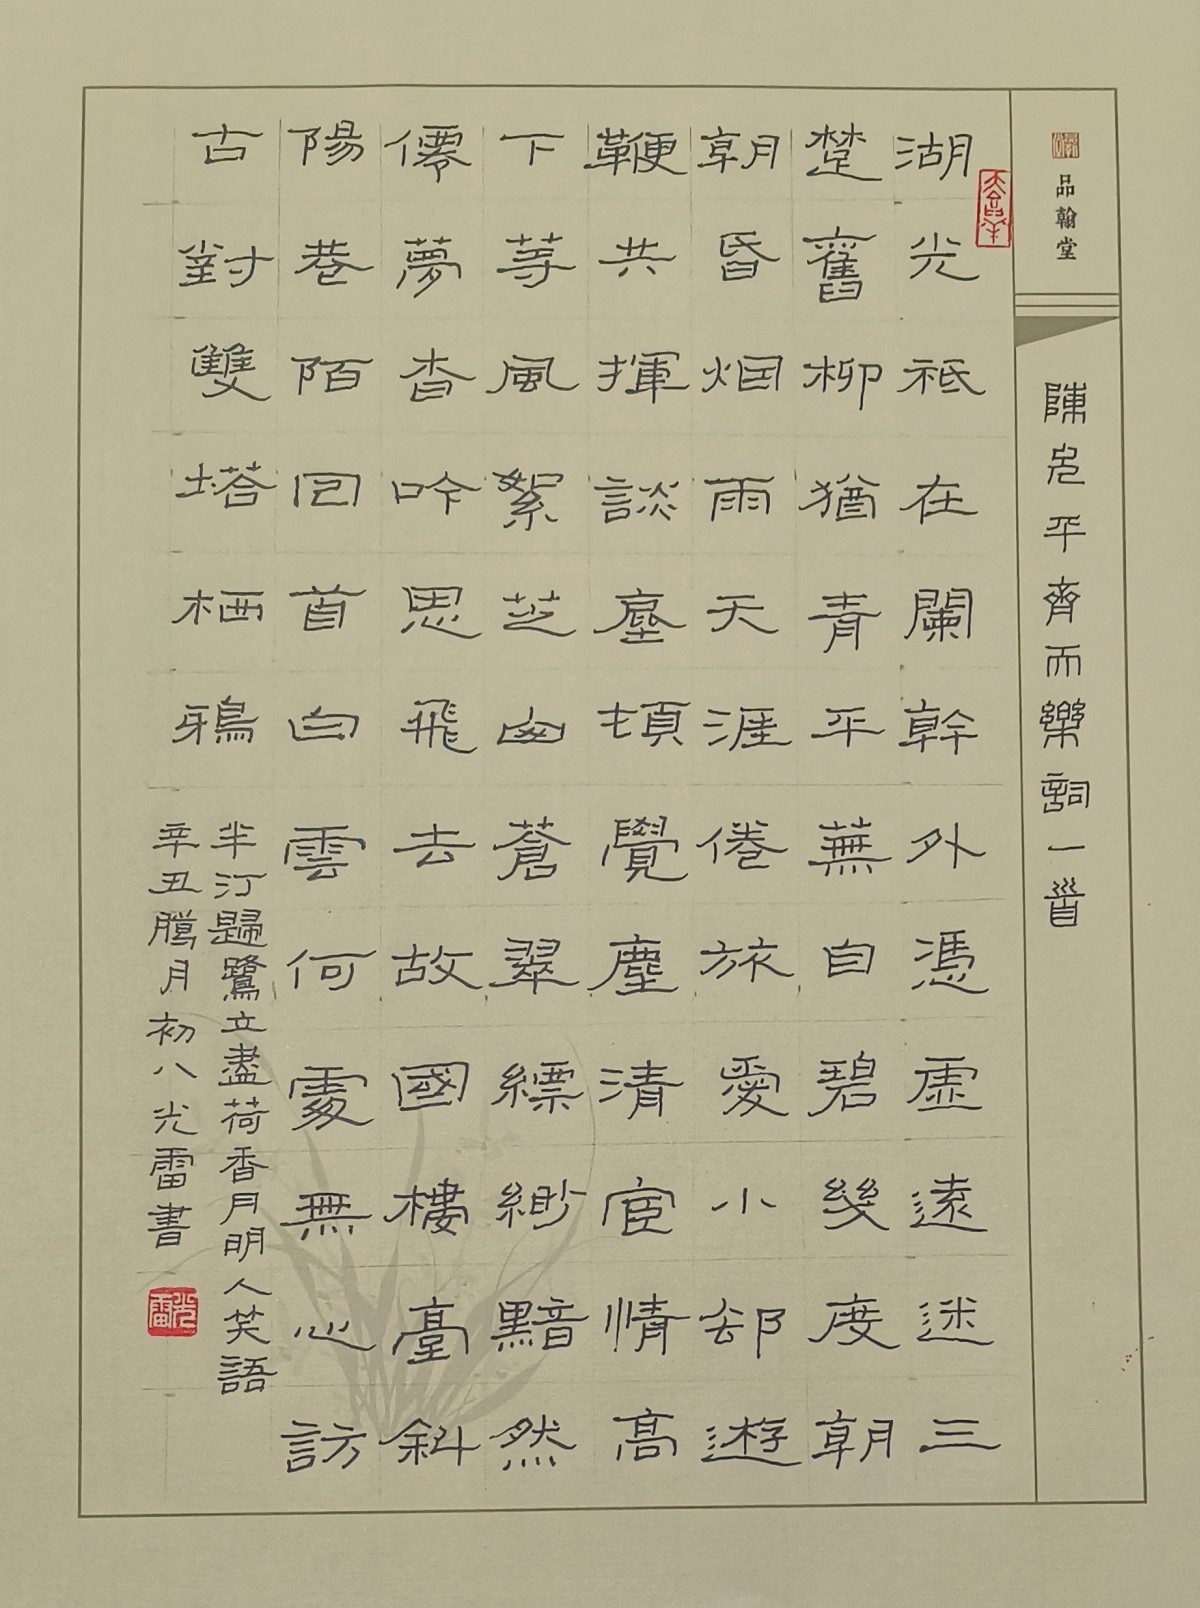 品翰堂
陳允平齊天樂詞一首
湖光祇在闌幹外憑虛遠迷三
楚舊柳猶青平蕪自碧幾度朝
朝昏烟雨天涯倦旅愛小却遊
鞭共揮談麈頓覺塵清宦情高
下等風絮芝山蒼翠縹緲黯然
僊夢杳吟思飛去故國樓臺斜
陽巷陌回首白雲何處無心訪
古對雙塔栖鴉
半汀歸鷺立盡荷香月明人笑語
辛丑臘月初八光雷書
光雷